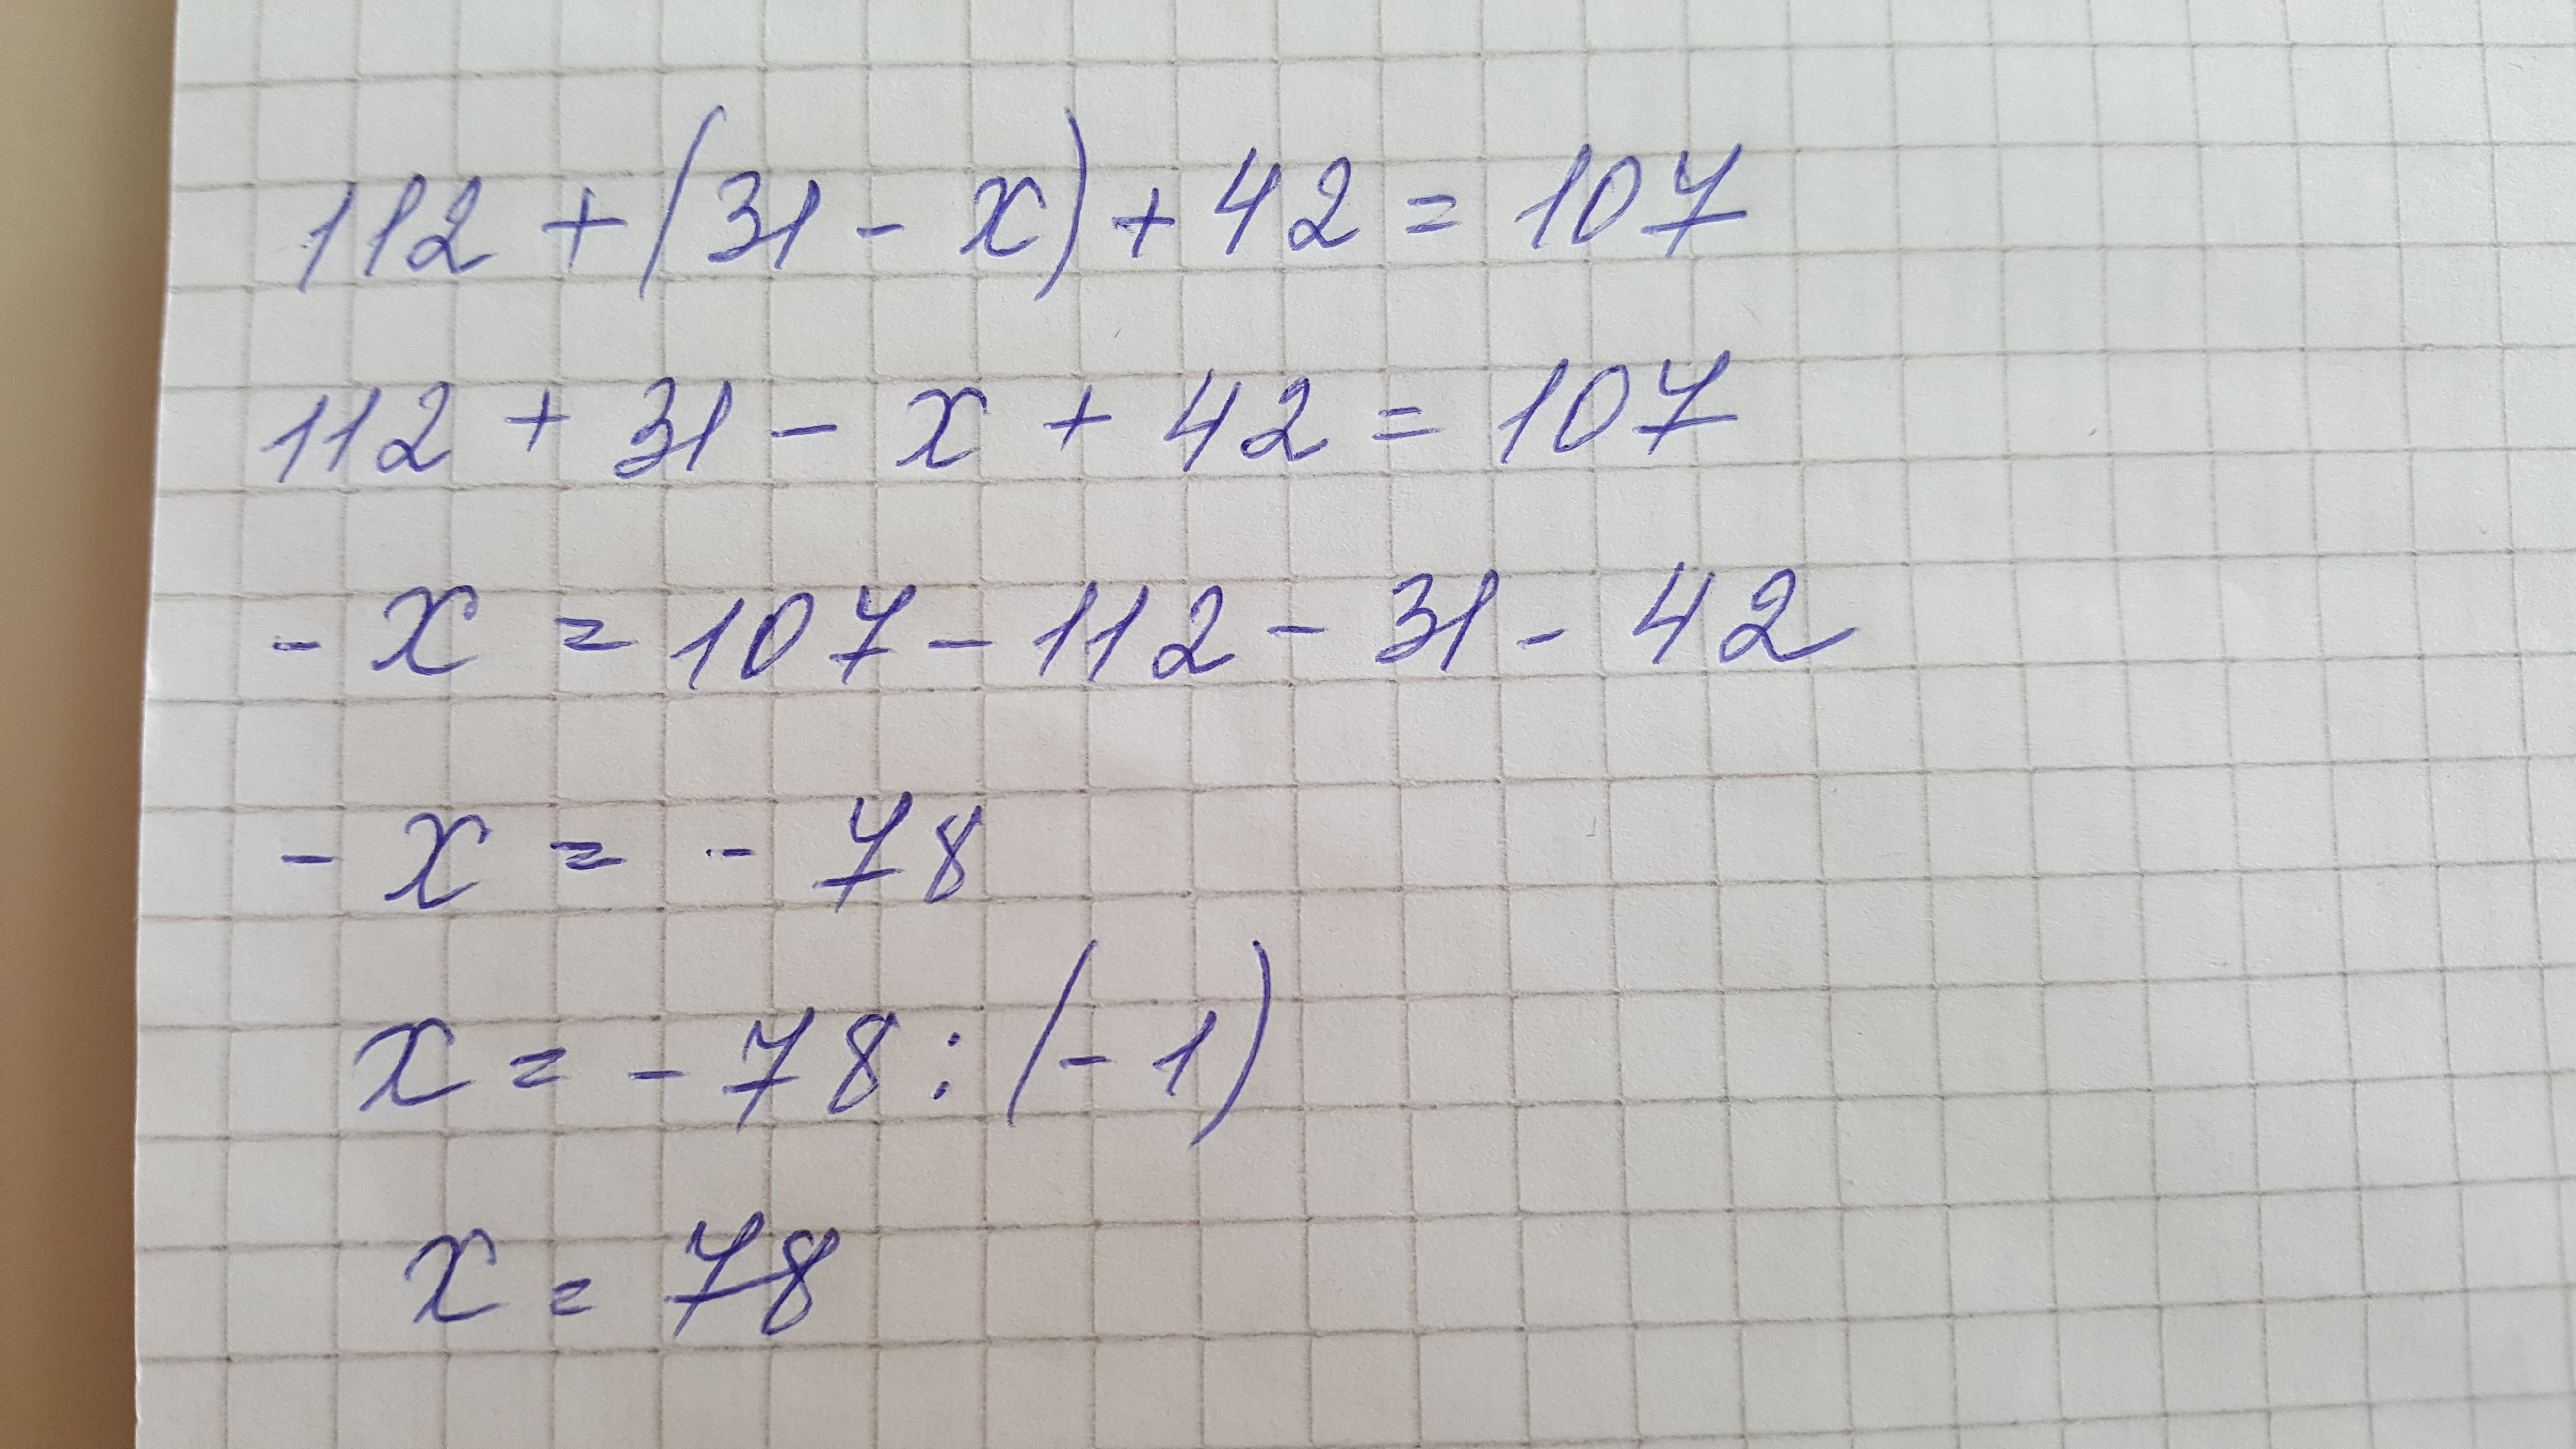 112 + (31 - x) + 42 = 107
112 + 31 - x + 42 = 107
- x = 107 - 112 - 31 - 42
- x = - 78
x = - 78 : (- 1)
x = 78